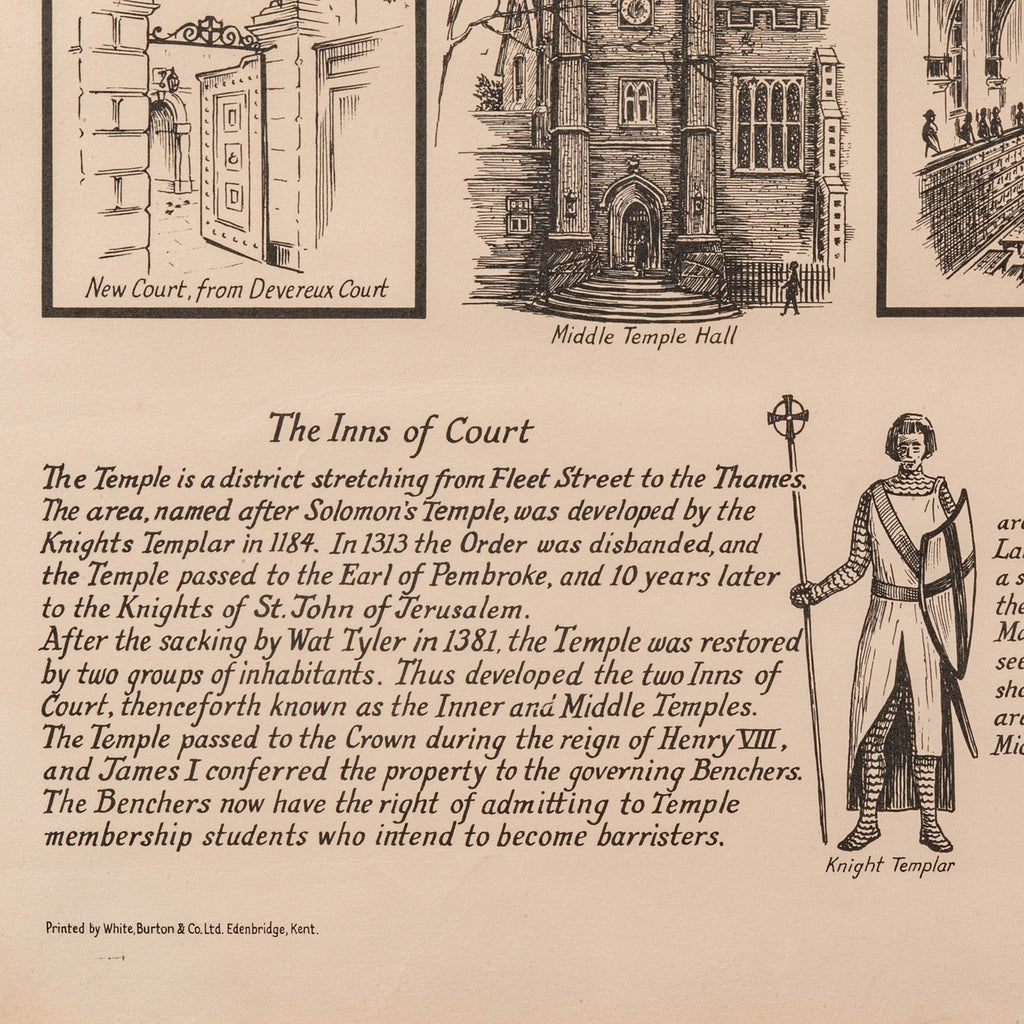 New Court, from Devereux Court
Middle Temple Hall
The Inns of Court
The Temple is a district stretching from Fleet Street to the Thames.
The area, named after Solomon's Temple, was developed by the
Knights Templar in 1184. In 1313 the Order was disbanded, and
the Temple passed to the Earl of Pembroke, and 10 years later
to the Knights of St. John of Jerusalem.
After the sacking by Wat Tyler in 1381, the Temple was restored
by two groups of inhabitants. Thus developed the two Inns of
Court, thenceforth known as the Inner and Middle Temples.
The Temple passed to the Crown during the reign of Henry VIII,
and James I conferred the property to the governing Benchers.
The Benchers now have the right of admitting to Temple
membership students who intend to become barristers.
Knight Templar
a s
Printed by White, Burton & Co. Ltd. Edenbridge, Kent.